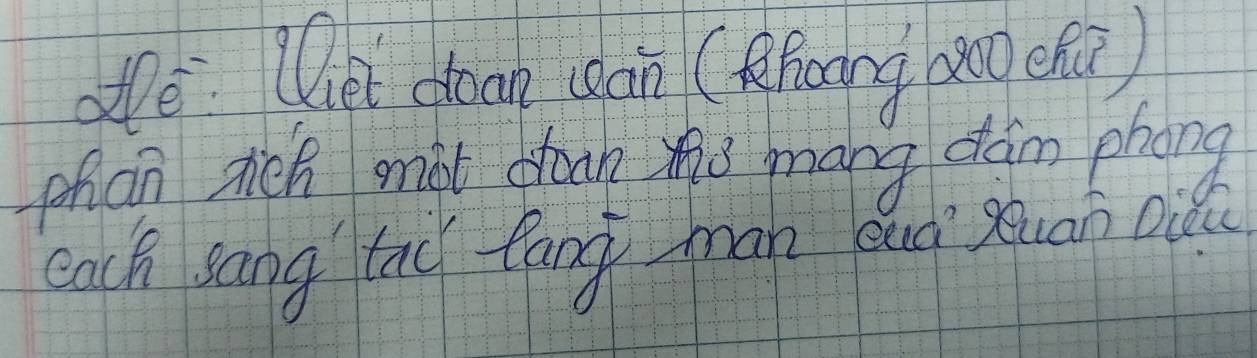 Đề: Viết đoạn văn (khoảng 200 chữ)
phân tích một đoạn thơ mang đậm phong
cách sáng tác lãng mạn của Xuân Diệu.